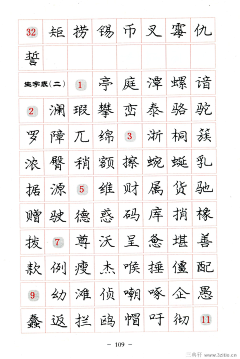 32 矩 捞 锡 币 叉 霉 仇
誓
生字表(二) 1 亭 庭 潭 螺 谙
2 澜 瑕 攀 峦 泰 骆 驼
罗 障 兀 绵 3 浙 桐 簇
浓 臀 稍 额 擦 蜿 蜒 乳
据 源 5 维 财 属 货 驰
赠 驶 德 惑 码 库 捎 橡
拔 7 尊 沃 呈 惫 堪 善
款 例 瘦 杰 喉 捶 僵 配
9 幼 滩 侦 嘲 啄 企 愚
蠢 返 拦 鸥 帽 吁 彻 11
- 109 -